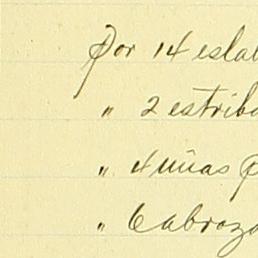 Por 14 eslab
" 2 estribo
" 4 uñas p
" 6 abraza